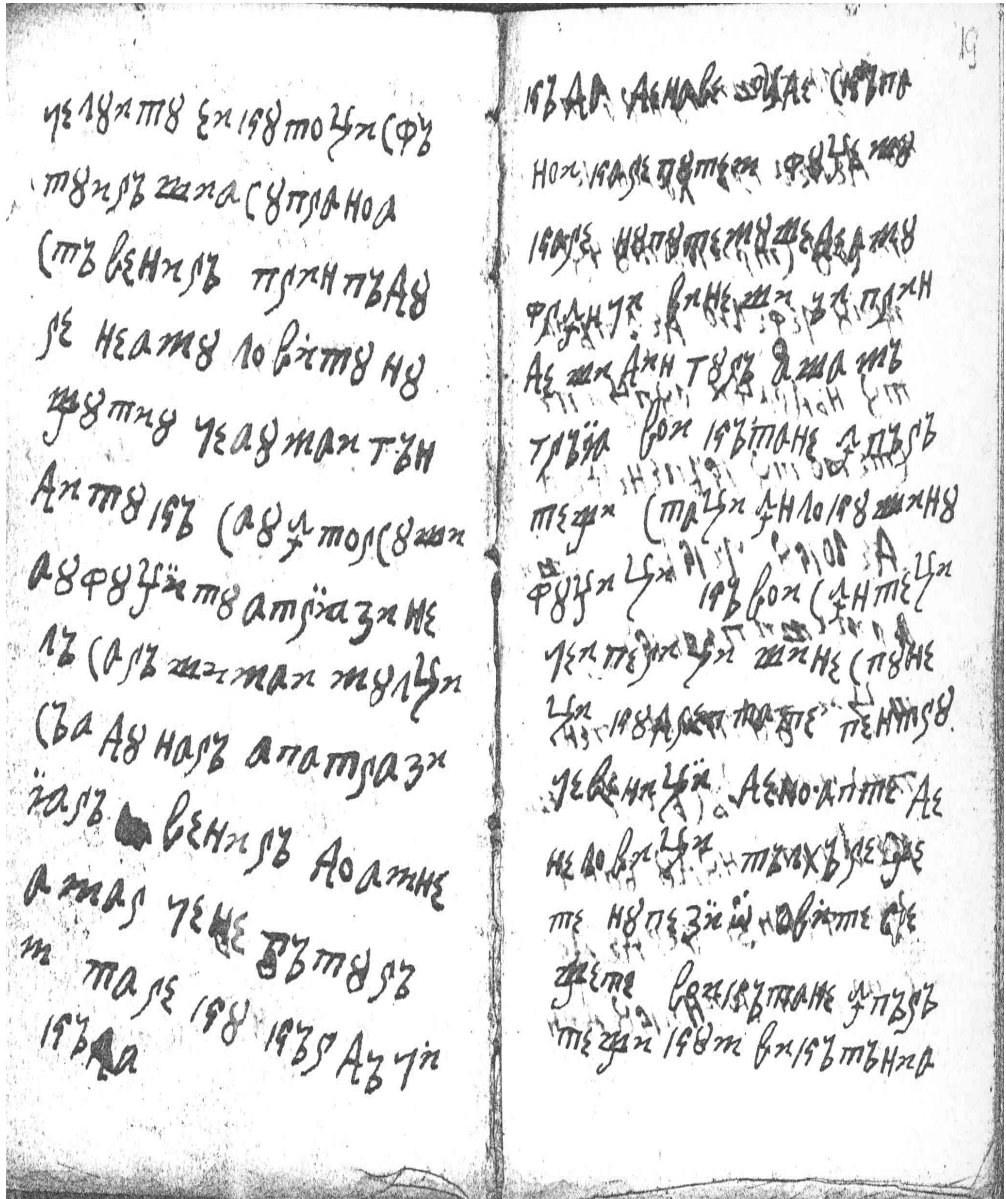 челꙋитꙋ еи кꙋтоци сфъ
тꙋиръ шиа сꙋпраноа
стъ вениръ прин пъдꙋ
ре неамꙋ ловитꙋ нꙋ
щꙋтиꙋ чеаꙋ маи гън
дитꙋ къ саꙋ ꙟторсꙋ ши
аꙋ фꙋџитꙋ атріа зи не
лъсаръ шимаи мꙋлци
съ адꙋнаръ апатра зи
їаръ вениръ доамне
амар чене бътꙋръ
т таре кꙋ кър дъ чи
къда
къ да денаве скъпа
нои каре пꙋтем фꙋџемꙋ
каре нꙋпꙋтемꙋ шедеамꙋ
фрꙟнчи вине ши прин
де шидин гꙋръ аша мъ
тръїа вои кътане ꙟпъръ
тещи стаци ꙟнлокꙋ шинꙋ
фꙋџици къ вои сꙟнтеци
чеи пезици шине спꙋне
ци кꙋдрептате пентрꙋ
чевеници деноапте де
неловици тълхъреще
те нꙋпезиꙋа
щете вои кътане ꙟпъръ
тещи кꙋм викътъниа